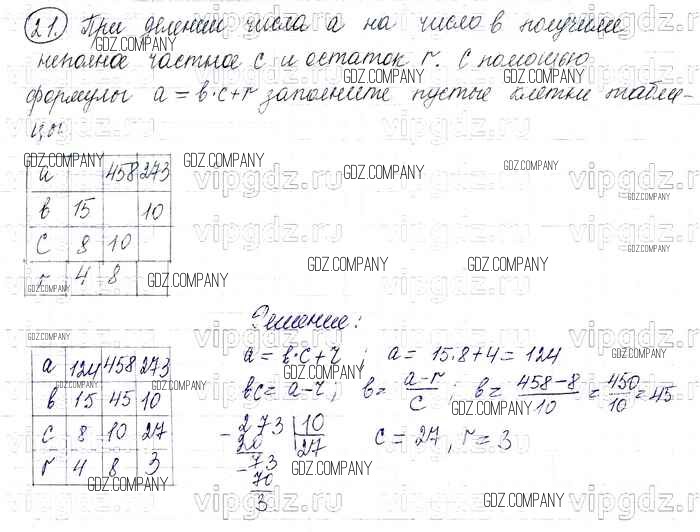 21. При делении числа a на число в получили
неполное частное c и остаток r. С помощью
формулы a = в·c+r заполните пустые клетки табли-
цы
GDZ.COMPANY
vipgdz.ru
a 458 273
в 15 10
c 8 10
r 4 8
Решение:
a 124 458 273
в 15 45 10
c 8 10 27
r 4 8 3
a = в·c+r ; a = 15·8+4 = 124
вc = a-r ; в = a-r/c ; в = 458-8/10 = 450/10 = 45
273 | 10
20 | 27
-73
70
3
c = 27, r = 3